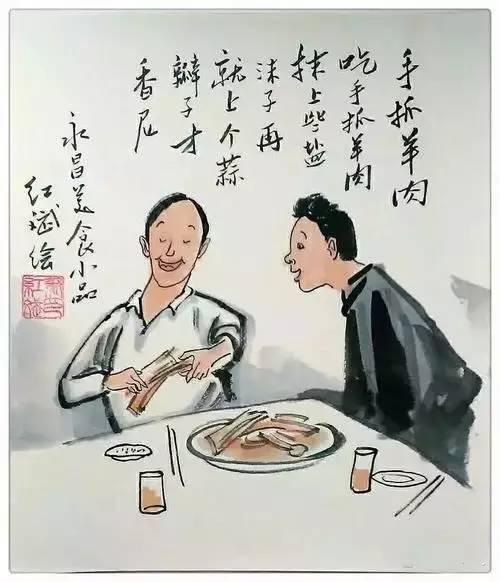 手抓羊肉
吃手抓羊肉
抹上些盐
沫子再
就上个蒜
瓣子才
香尼
永昌美食小品
红斌绘